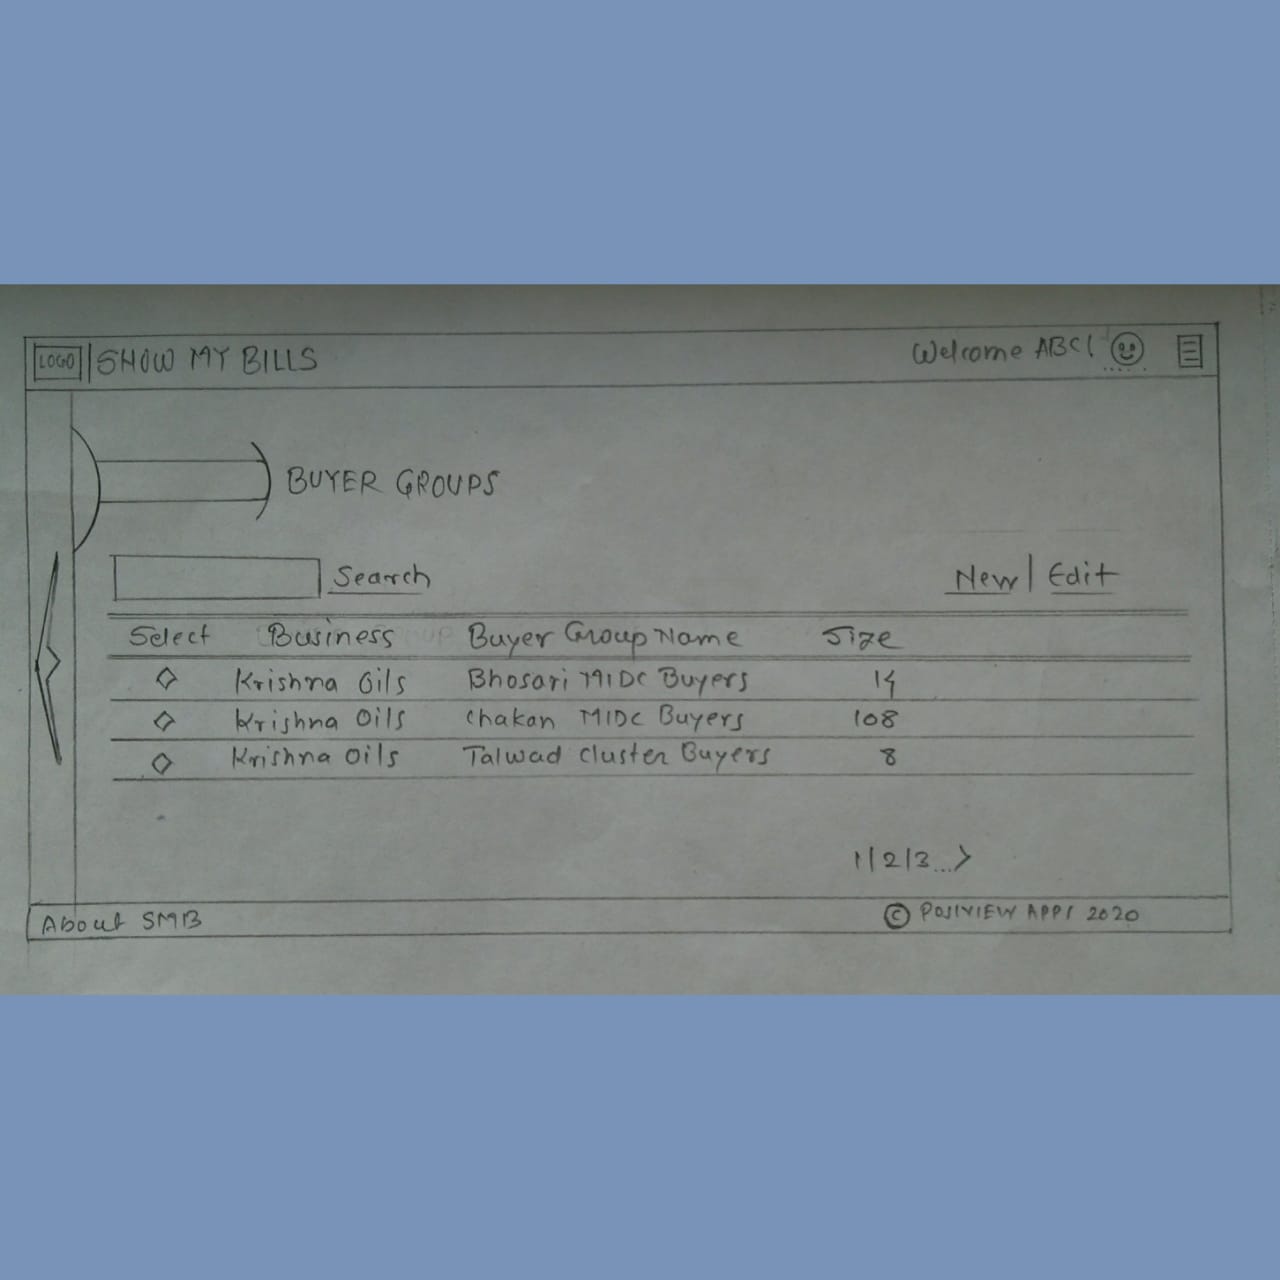 LOGO SHOW MY BILLS Welcome ABC!
BUYER GROUPS
Search New | Edit
Select Business Buyer Group Name Size
Krishna Oils Bhosari MIDC Buyers 14
Krishna Oils Chakan MIDC Buyers 108
Krishna Oils Talwad Cluster Buyers 8
1|2|3...>
About SMB © POSIVIEW APPS 2020